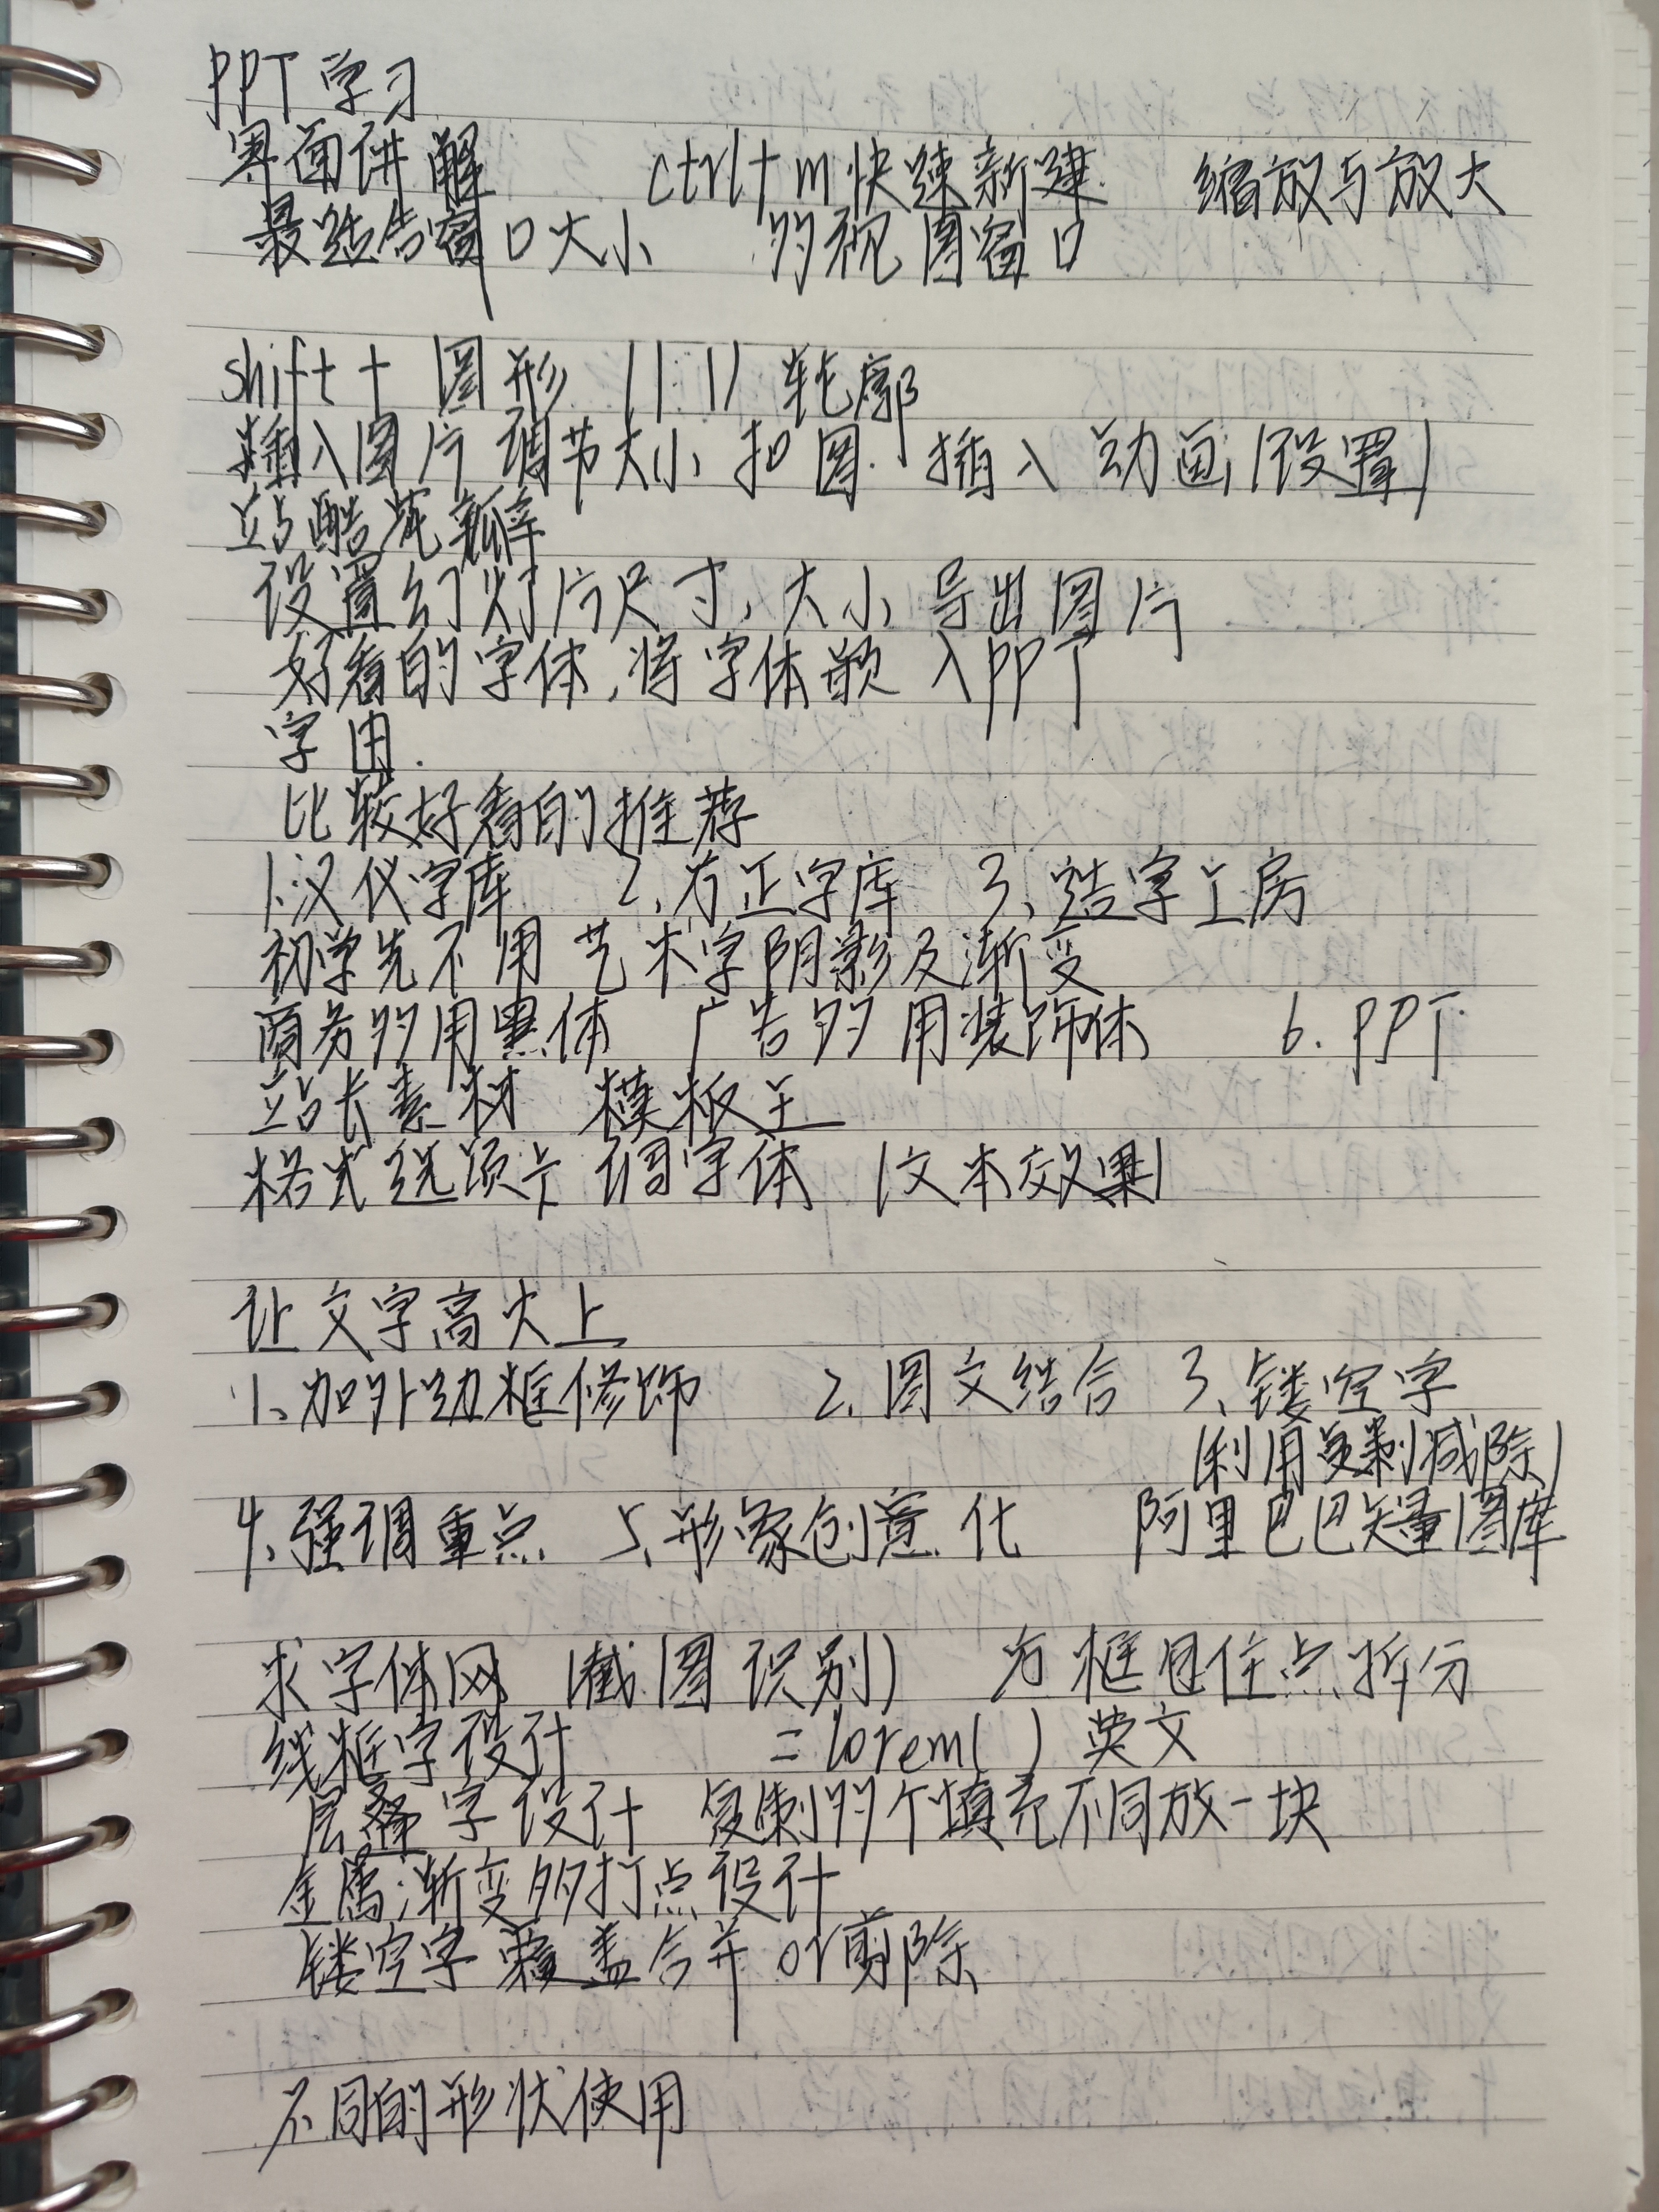 PPT学习
界面讲解 ctrl+m快速新建 缩放与放大
最适合窗口大小 多视图窗口
shift+图形 (1:1) 轮廓
插入图片 调节大小 扣图. 插入动画(设置)
站酷花瓣
设置幻灯片尺寸、大小 导出图片
好看的字体,将字体嵌入PPT
字由.
比较好看的推荐
1.汉仪字库 2、方正字库 3、造字工房
初学先不用艺术字阴影及渐变
商务多用黑体 广告多用装饰体 6.PPT
站长素材 模板王
格式选项卡 调字体 (文本效果)
让文字高大上
1、加外边框修饰 2、图文结合 3、镂空字
(利用复制减除)
4、强调重点 5、形象创意化 阿里巴巴矢量图库
求字体网 (截图识别) 方框包住点拆分
线框字设计 =lorem( )英文
层叠字设计 复制多个填充不同放一块
金属渐变多打点设计
镂空字覆盖合并or剪除
不同的形状使用